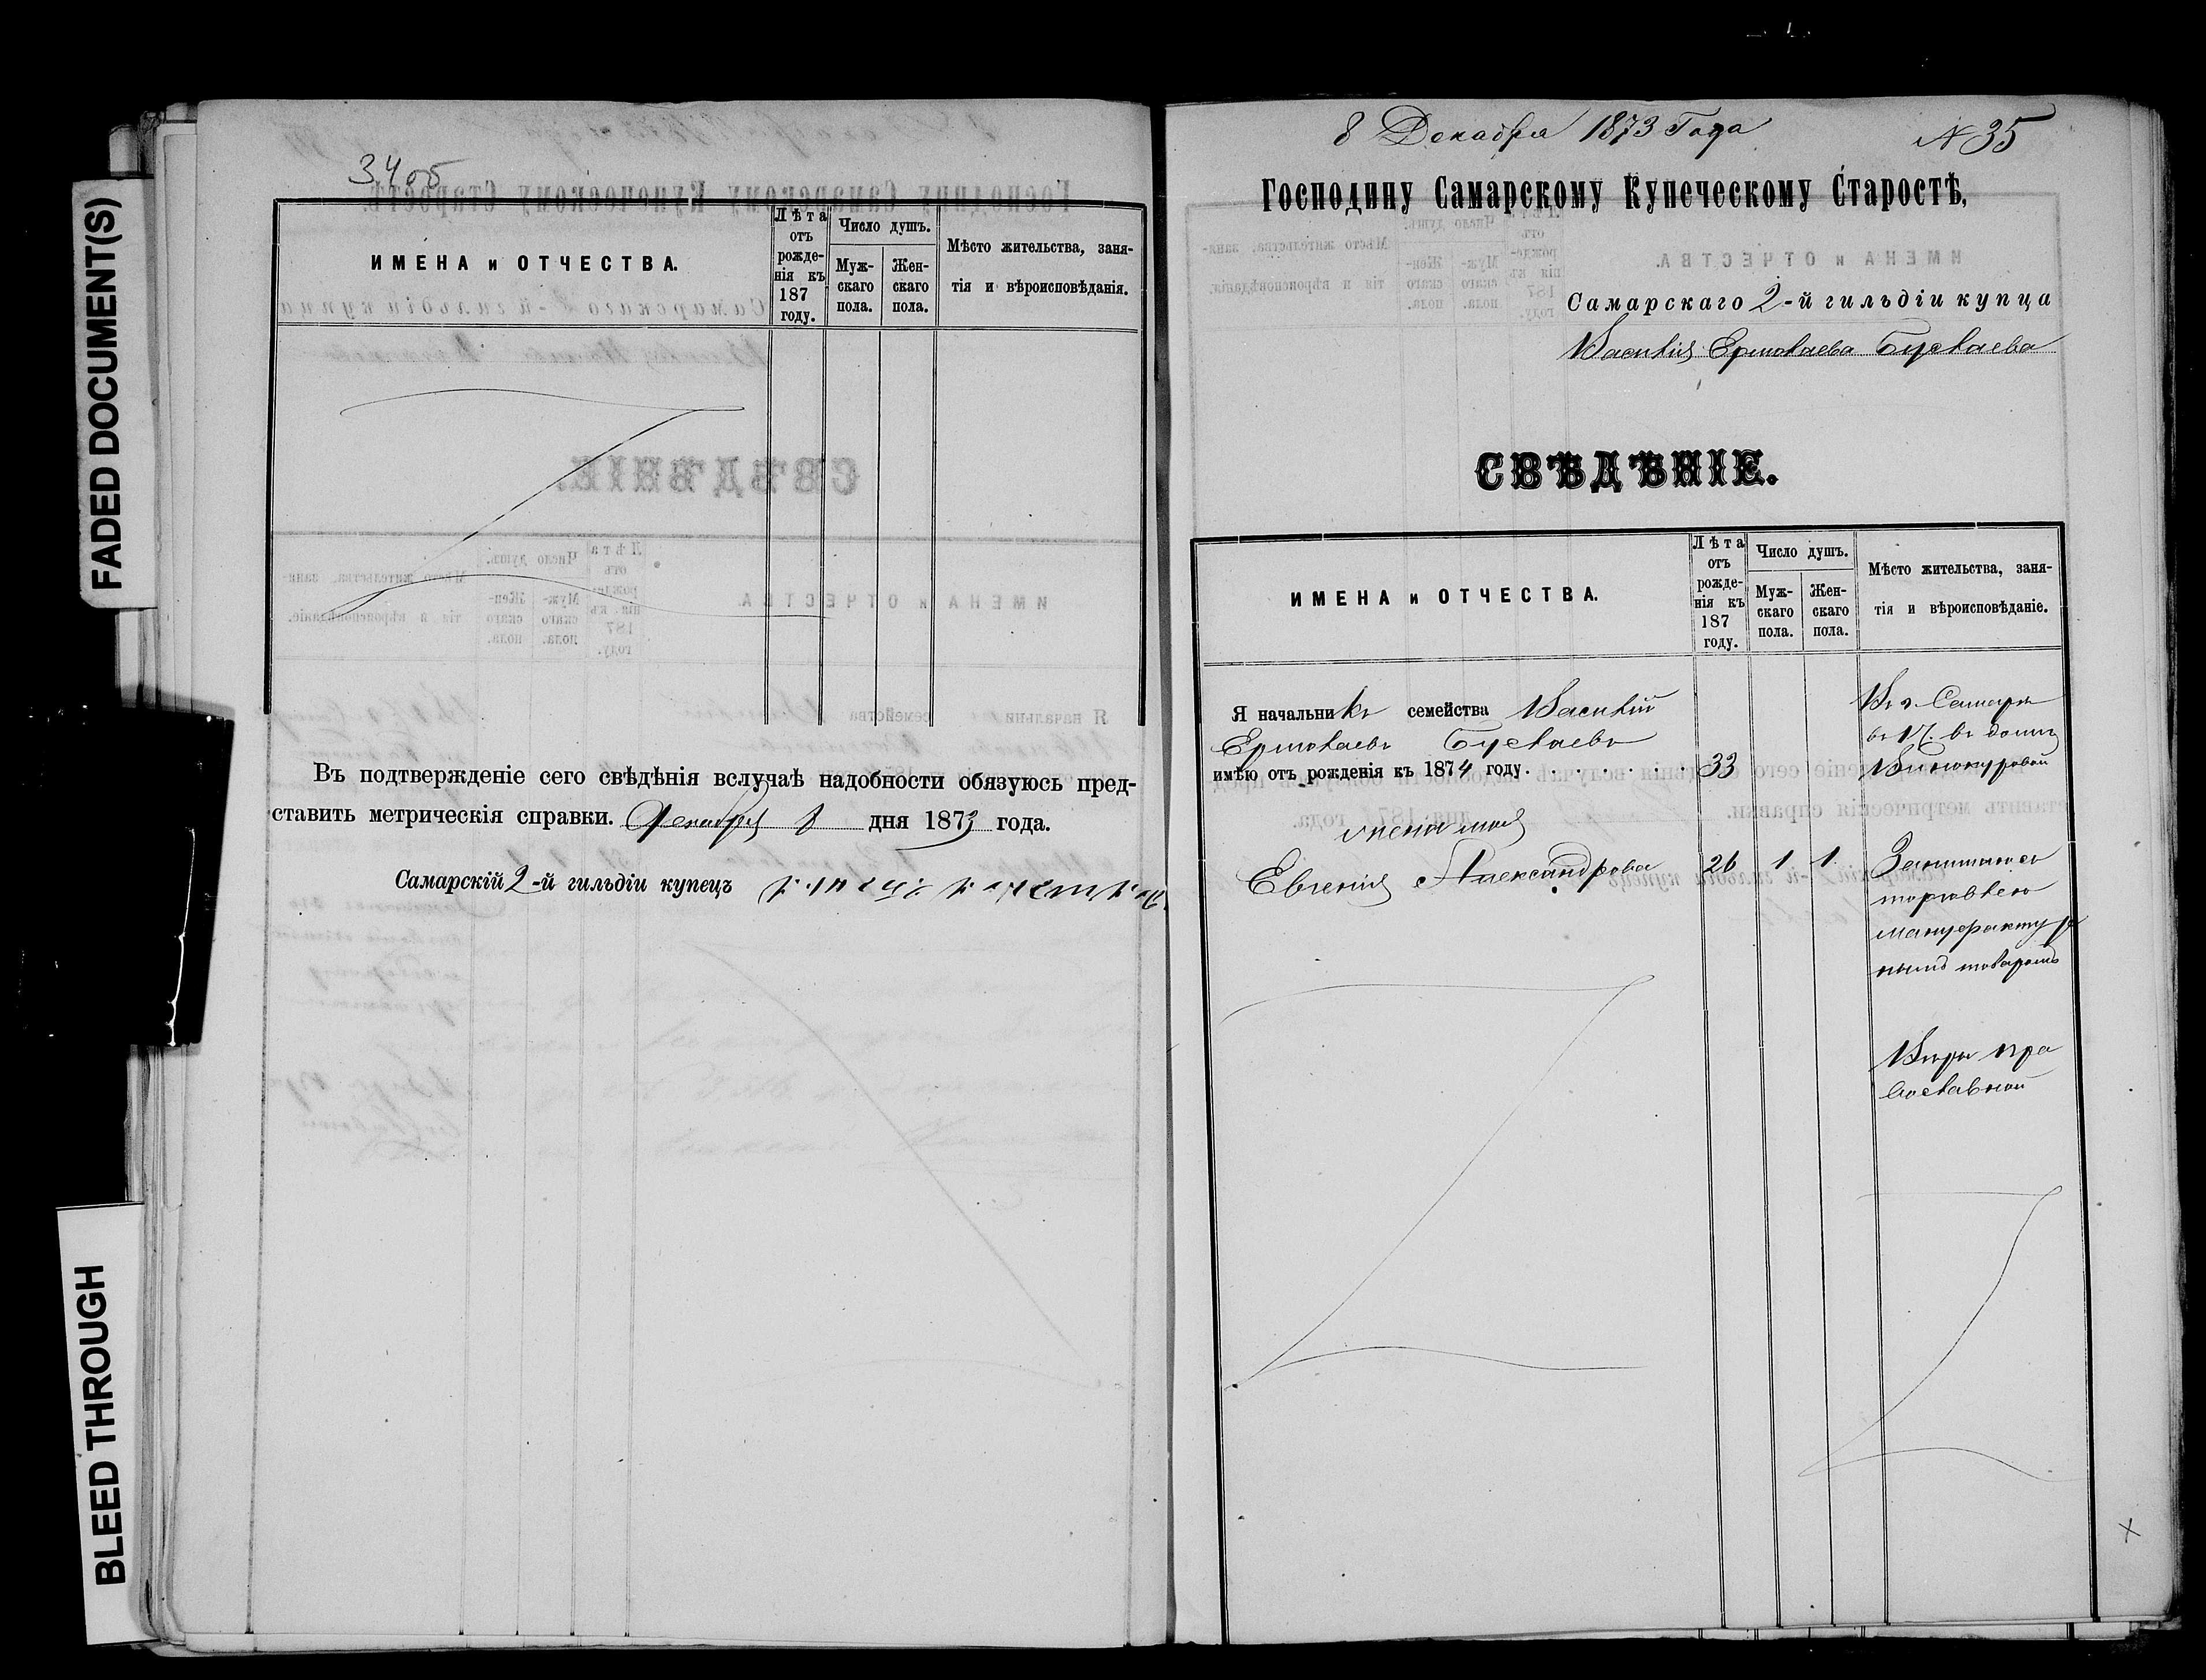 FADED DOCUMENT(S)
BLEED THROUGH
34 об
ИМЕНА и ОТЧЕСТВА.
Лѣта отъ рожденія къ 187 году.
Число душъ.
Мужскаго пола.
Женскаго пола.
Мѣсто жительства, заня-
тія и вѣроисповѣданія.
Въ подтвержденіе сего свѣдѣнія вслучаѣ надобности обязуюсь пред-
ставить метрическія справки. Декабря 8 дня 1873 года.
Самарскій 2-й гильдіи купецъ
8 Декабря 1873 Года
№ 35
Господину Самарскому Купеческому Старостѣ,
Самарскаго 2-й гильдіи купца
Василія Ермолаева Буслаева
СВѢДѢНІЕ.
ИМЕНА и ОТЧЕСТВА.
Лѣта
отъ
рожде-
нія къ
187
году.
Число душъ.
Муж-
скаго
пола.
Жен-
скаго
пола.
Мѣсто жительства, заня-
тія и вѣроисповѣданіе.
Я начальникъ семейства Василій
Ермолаевъ Буслаевъ
имѣю отъ рожденія къ 1874 году. . . . . . . 33
Въ г. Самарѣ
въ 1 ч. въ домѣ
Винокуровой
жена моя
Евгенія Александрова 26 1 1
Занимаюсь
торговлею
мануфактур
нымъ товаромъ
Вѣры пра
вославной